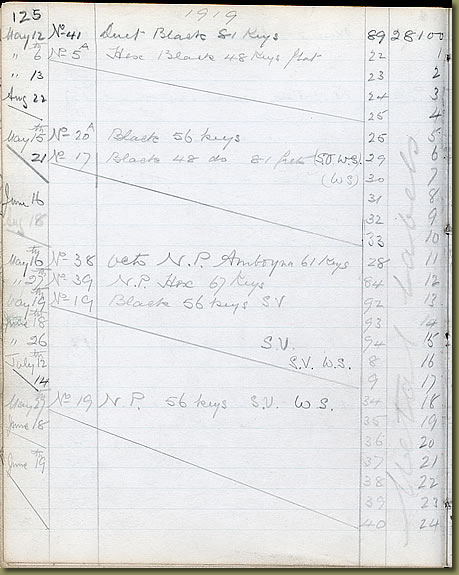 125 1919
May 12 No 41 Duet Black 81 Keys 89 28100
" 6th No 5A Hex Black 48 Keys flat 22 1
" 13 23 2
Aug 22 24 3
25 4
May 15th No 20A Black 56 keys 25 5
21 No 17 Black 48 do 81 (S.V. W.S. 29 6
(W.S) 30 7
June 16 31 8
18 32 9
33 10
May 16th No 38 Octo N.P. Amboyna 61 Keys 28 11
" 27th No 39 N.P. Hex 67 Keys 84 12
May 19th No 19 Black 56 keys S.V 92 13
June 18 93 14
" 26 S.V. 94 15
July 12th S.V. W.S. 8 16
14 9 17
May 27 No 19 N.P. 56 keys S.V. W.S. 34 18
June 18 35 19
36 20
June 19 37 21
38 22
39 23
40 24
labels